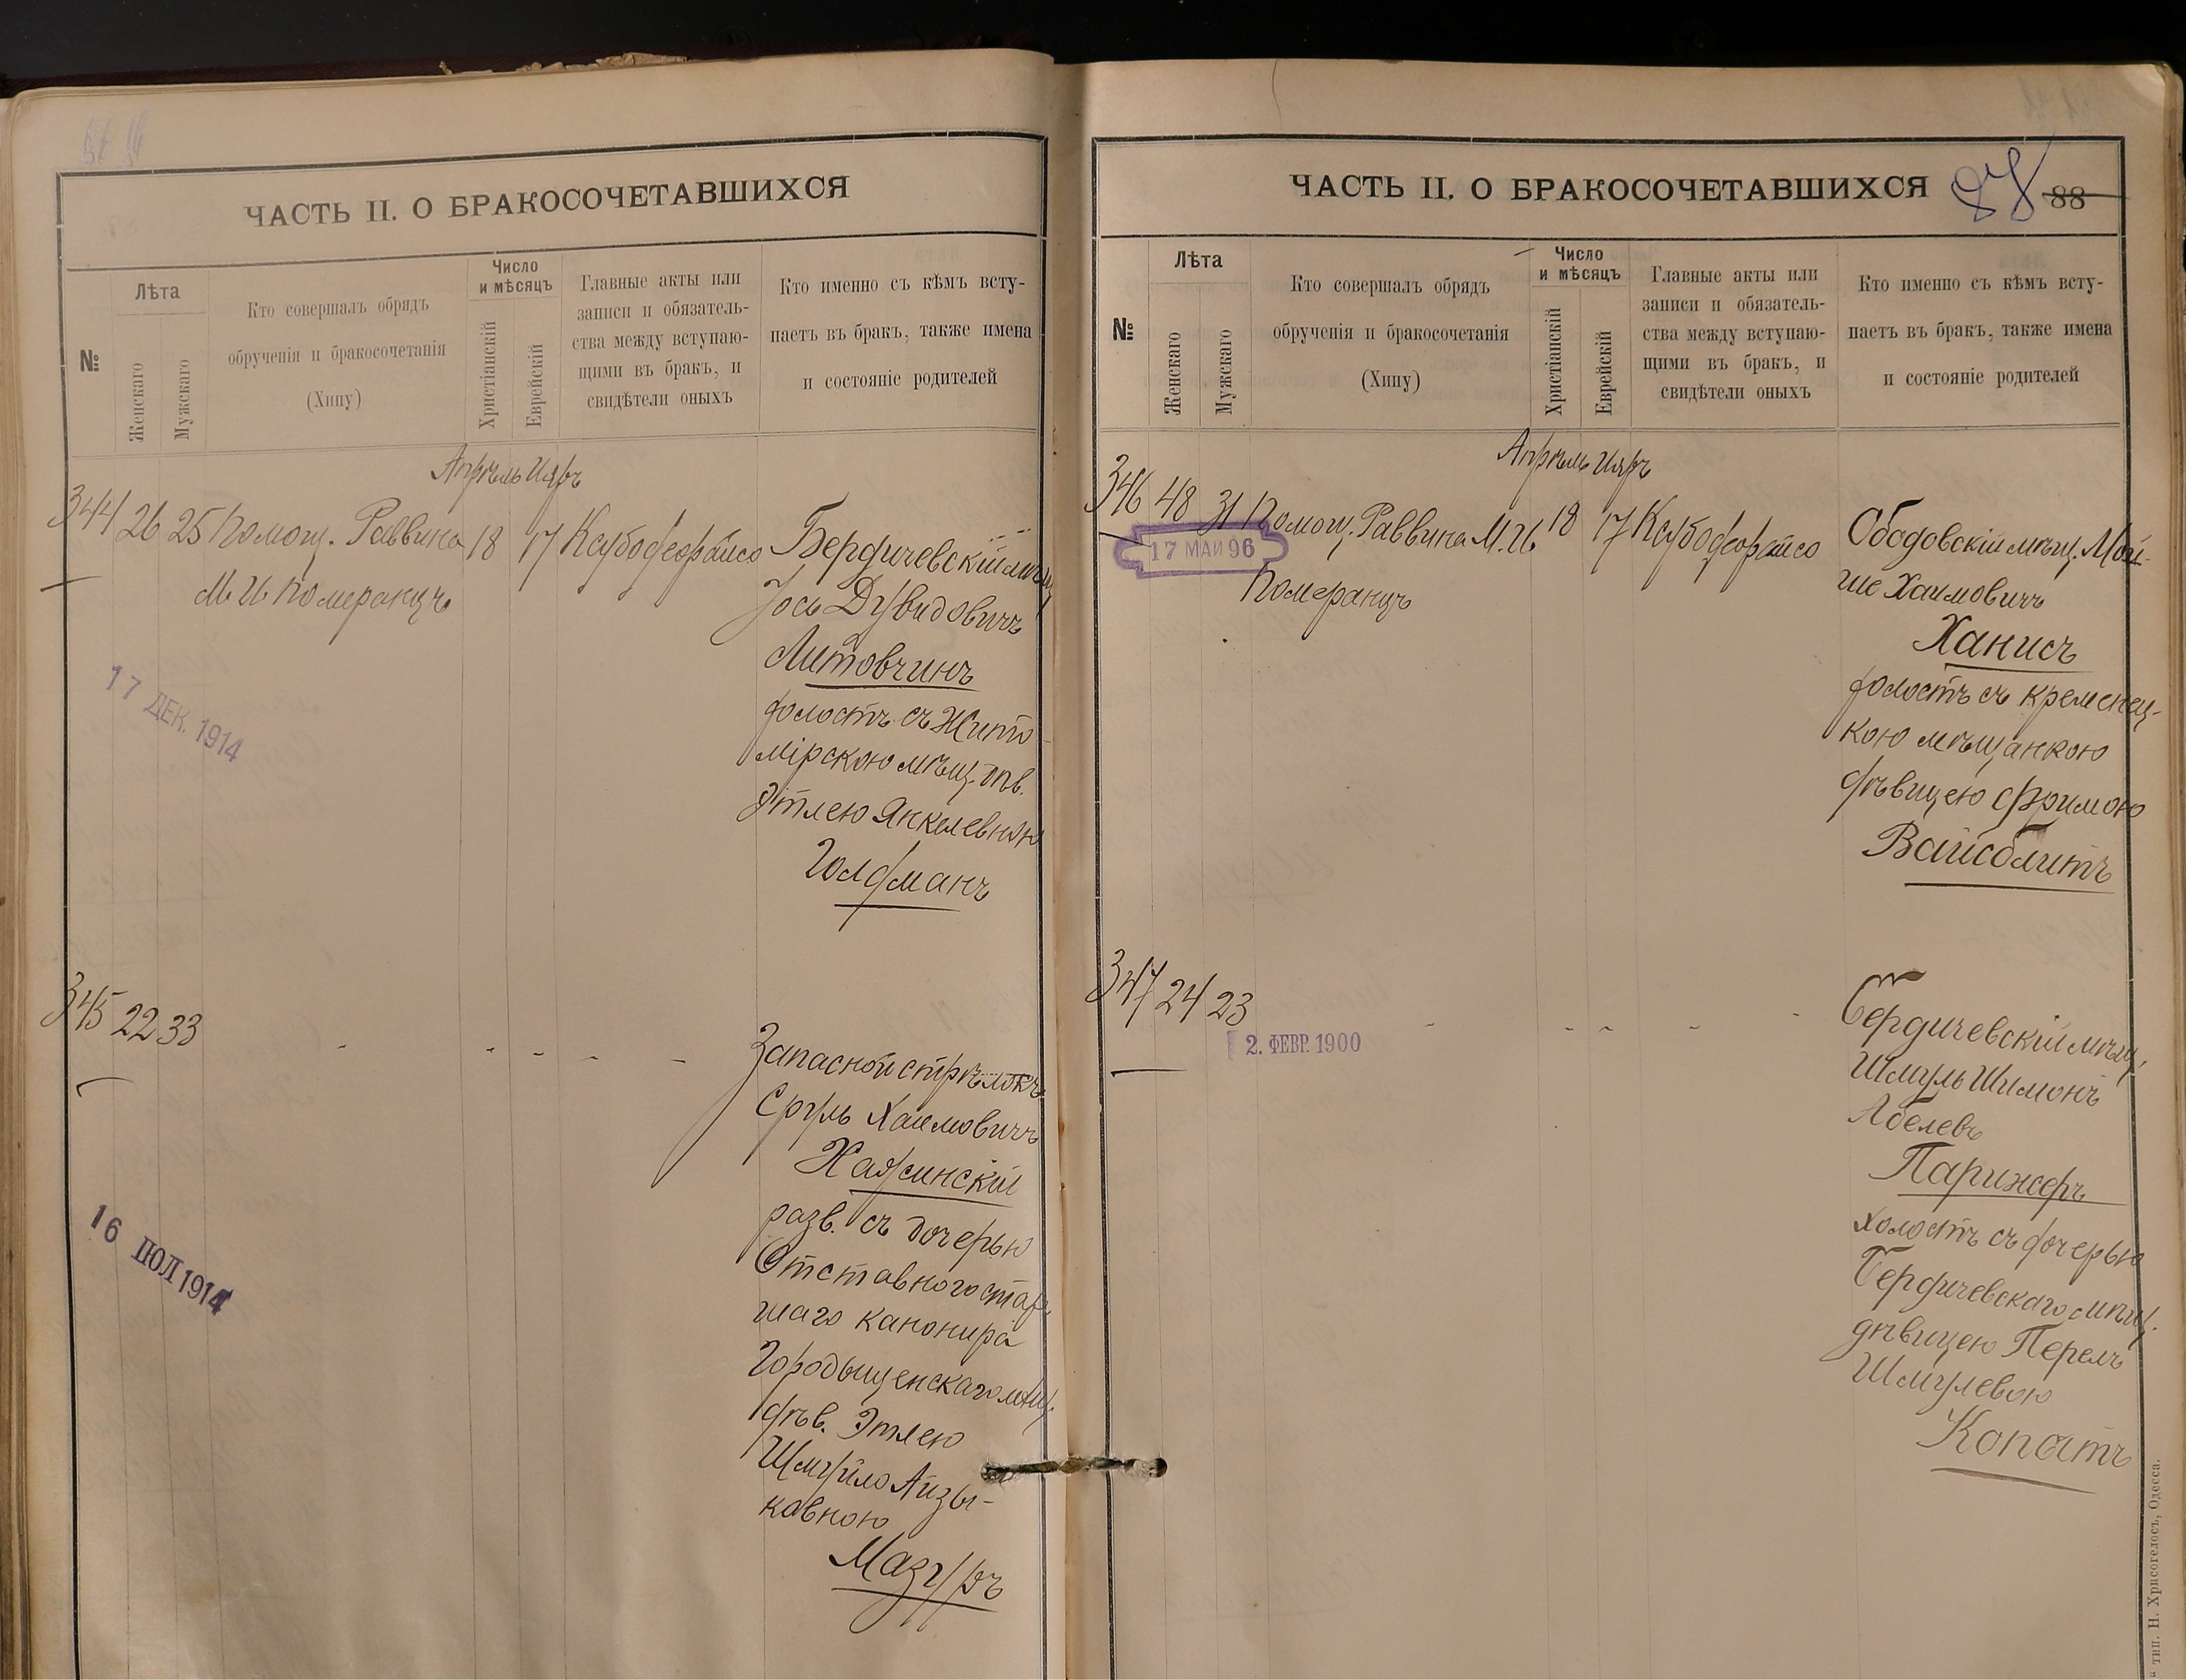 ЧАСТЬ II. О БРАКОСОЧЕТАВШИХСЯ
№
Лѣта
Женскаго
Мужскаго
Кто совершалъ обрядъ
обрученія и бракосочетанія
(Хипу)
Число
и мѣсяцъ
Христіанскій
Еврейскій
Главные акты или
записи и обязатель-
ства между вступаю-
щими въ бракъ, и
свидѣтели оныхъ
Кто именно съ кѣмъ всту-
паетъ въ бракъ, также имена
и состояніе родителей
Апрѣль Ияръ
344 26 25 Помощ. Раввина 18 17
М. И. Померанцъ
Бердичевскій мѣщ.
Іось Дувидовичъ
Литовчинъ
холостъ съ Жито
мірскою мѣщ. дѣв.
Этлею Янкелевною
Голдманъ
17 ДЕК. 1914
345 22 33 - - - - -
Запасной стрѣлокъ
Сруль Хаимовичъ
разв. съ дочерью
Отставного стар
шаго канонира
Городыщенскаго мѣщ.
дѣв. Этлею
Шмуйло Айзы-
ковною
Мазуръ
16 ІЮЛ 1914
ЧАСТЬ II. О БРАКОСОЧЕТАВШИХСЯ
87 88
№
Лѣта
Женскаго
Мужскаго
Кто совершалъ обрядъ
обрученія и бракосочетанія
(Хипу)
Число
и мѣсяцъ
Христіанскій
Еврейскій
Главные акты или
записи и обязатель-
ства между вступаю-
щими въ бракъ, и
свидѣтели оныхъ
Кто именно съ кѣмъ всту-
паетъ въ бракъ, также имена
и состояніе родителей
Апрѣль Ияръ
346 48 31 Помощ. Раввина М. И. 18 17
Померанцъ
17 МАИ 96
Ободовскій мѣщ. Мой-
ше Хаимовичъ
Ханисъ
холостъ съ кременец-
кою мѣщанкою
дѣвицею Фримою
Вайсблитъ
347 24 23 - - - - -
2. ФЕВР. 1900
Бердичевскій мѣщ.
Шмуль Шимонъ
Абелевъ
Парижеръ
холостъ съ дочерью
Бердичевскаго мѣщ.
дѣвицею Перель
Шмулевою
Копатъ
тип. Н. Хрисогелосъ, Одесса.